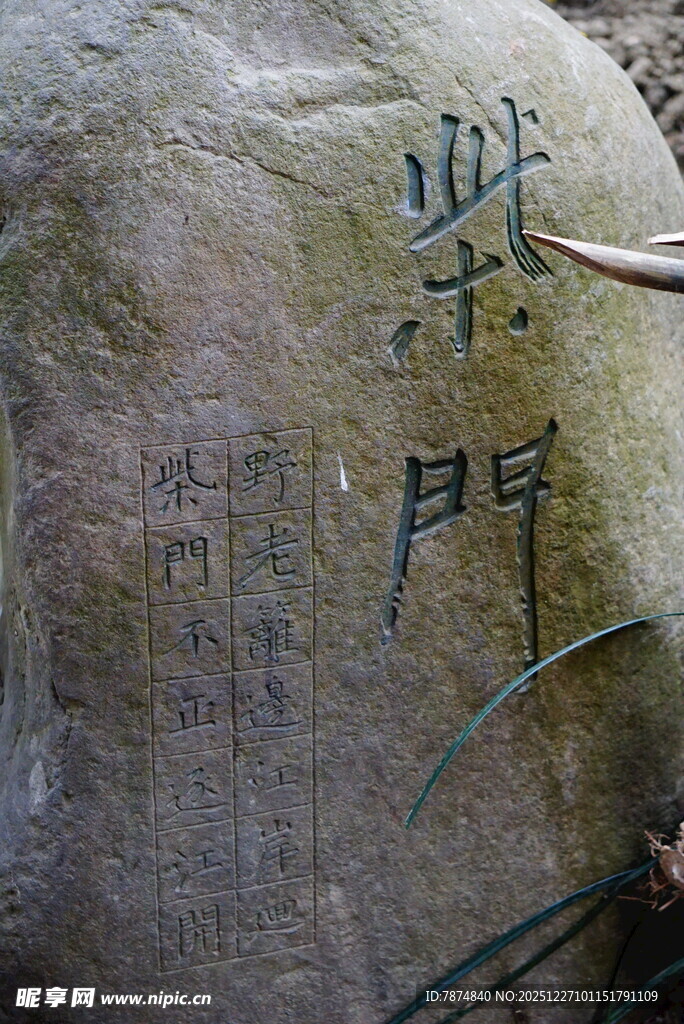 柴門
野老籬邊江岸迴
柴門不正逐江開
昵享网 www.nipic.cn
ID:7874840 NO:20251227101151791109